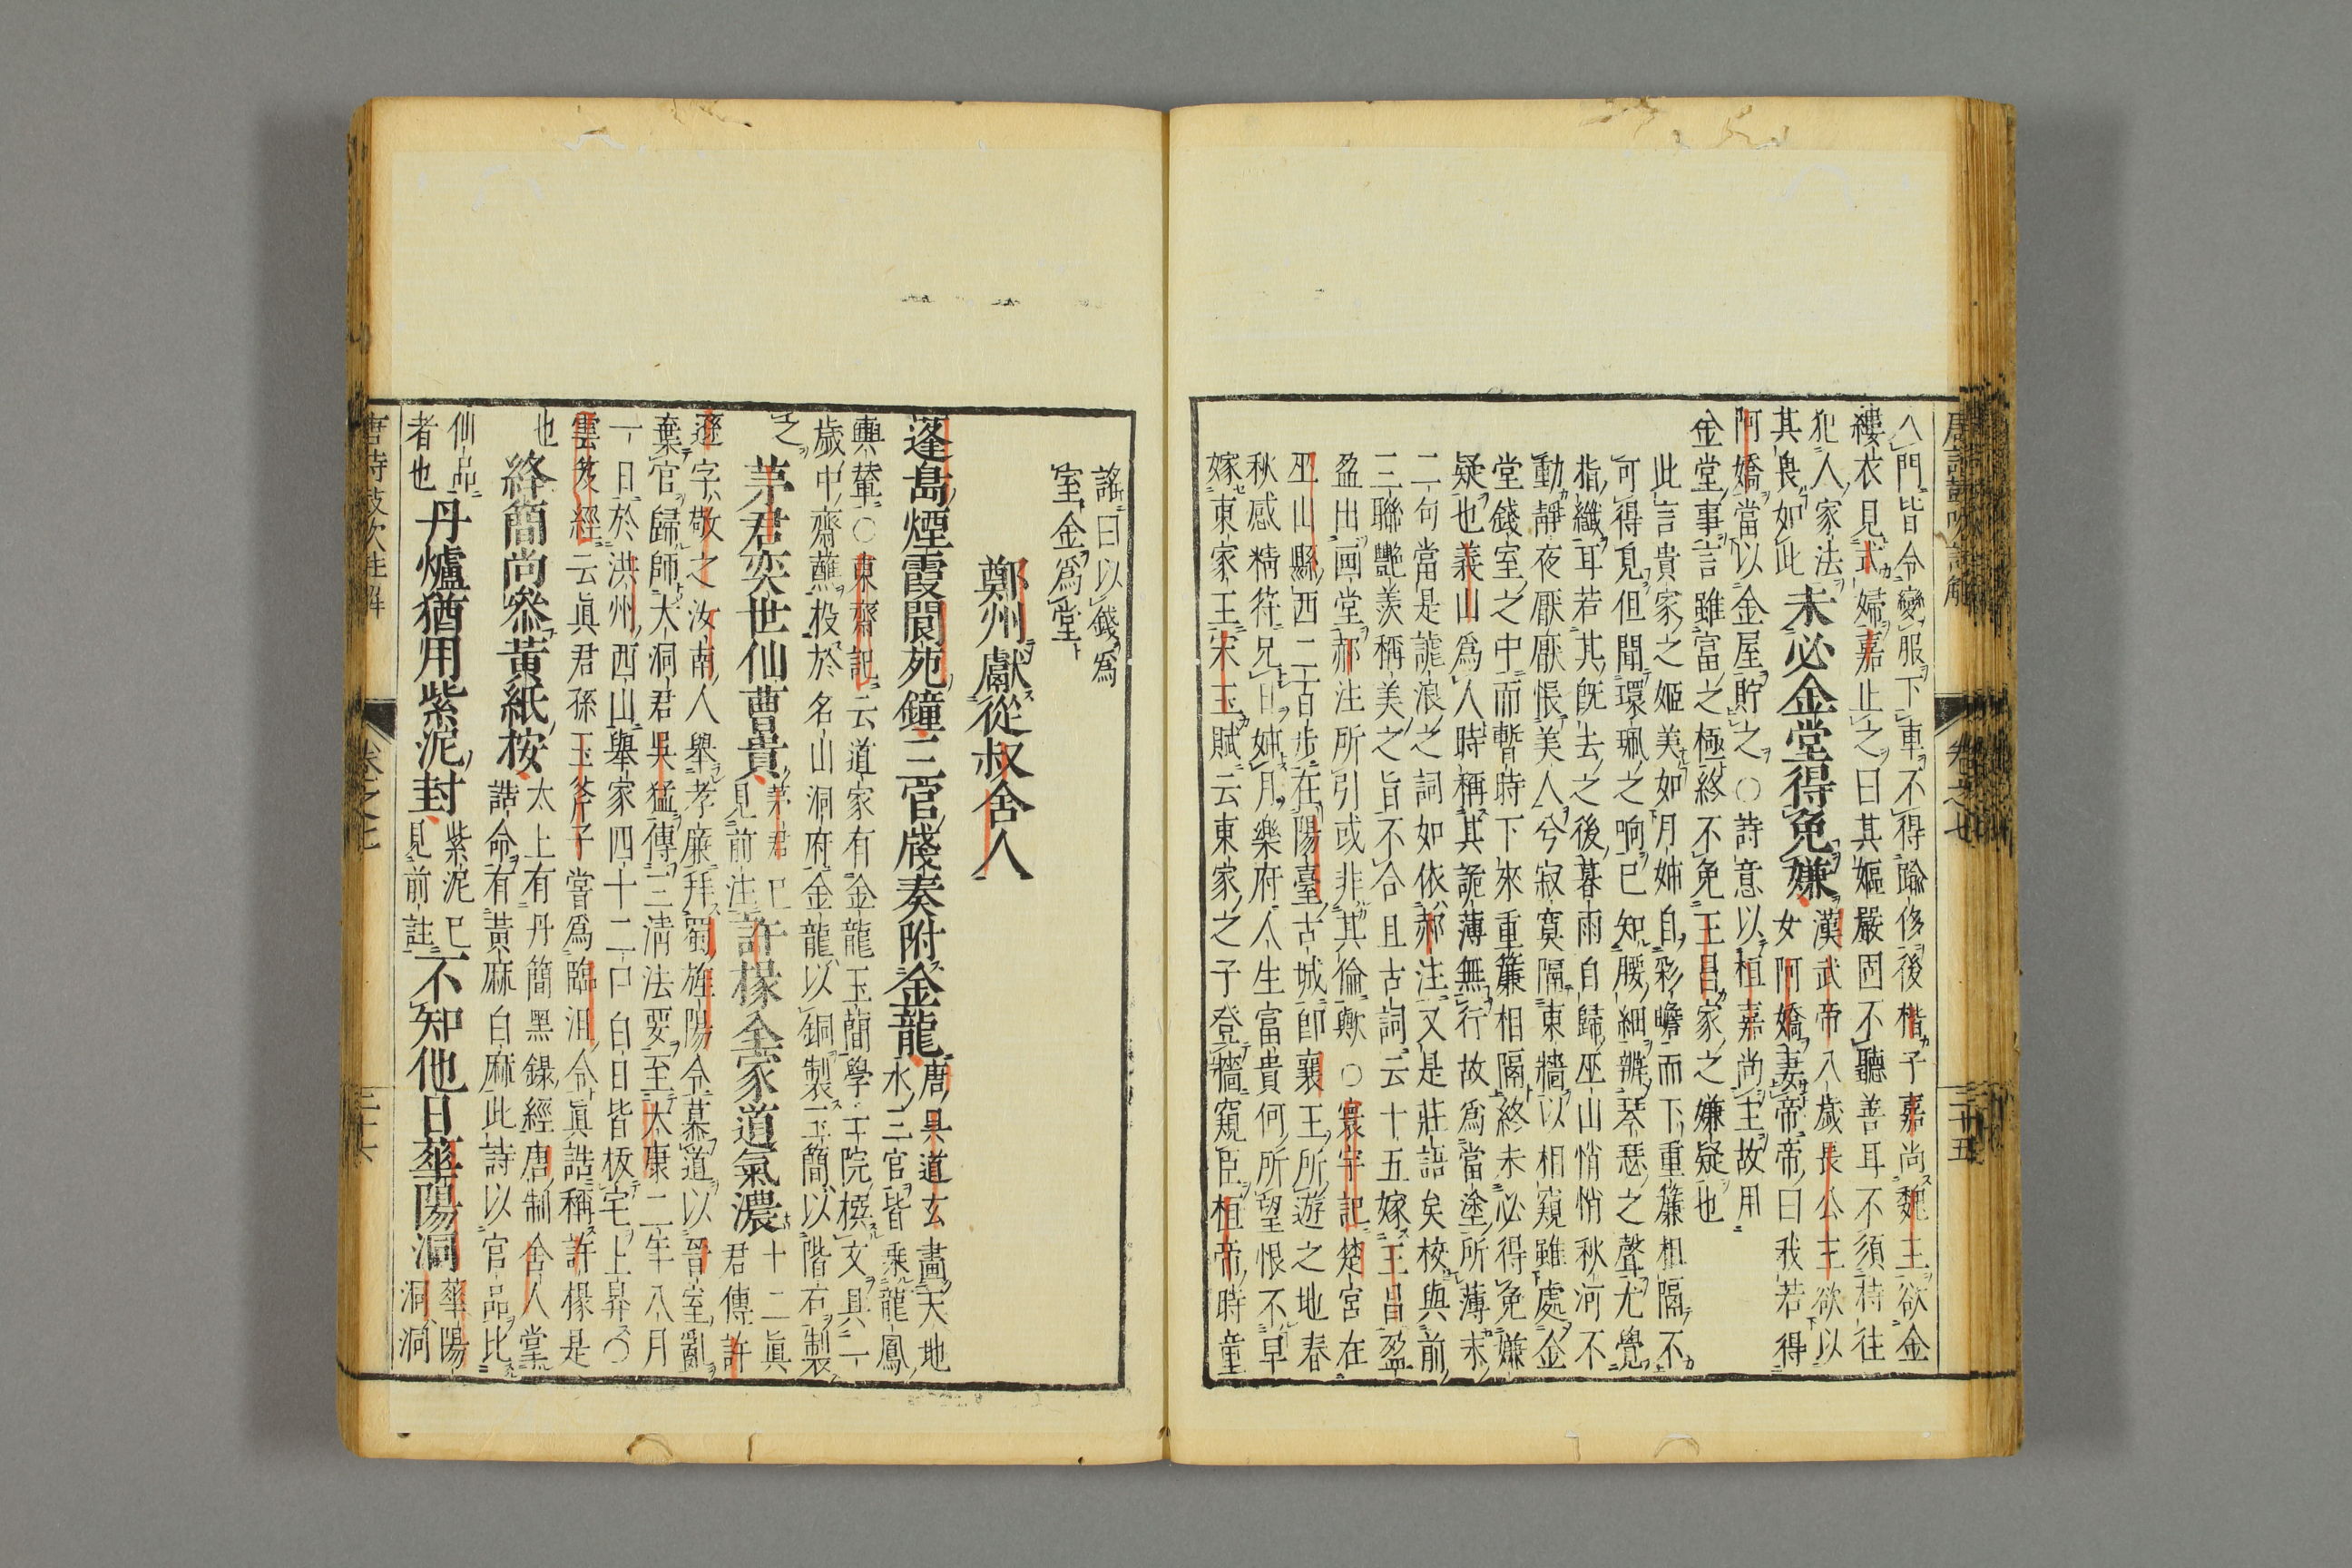 八門皆令變服下車不得踰修後楷子嘉尚魏王欲金
縷衣見式婦嘉止之曰其嫗嚴固不聽善耳不須持往
犯人家法
其良如此
未必金堂得免嫌
漢武帝八歲長公主欲以
女阿嬌妻帝帝曰我若得
阿嬌當以金屋貯之○詩意以桓嘉尚主故用
金堂事言雖富之極終不免王昌家之嫌疑也
此言貴家之姬美如月姊自彩蟾而下重簾相隔不
可得見但聞環珮之响已知腰細辨琴瑟之聲尤覺
指纖耳若其既去之後暮雨自歸巫山悄悄秋河不
動靜夜厭厭悵美人兮寂寞隔東牆以相窺雖處金
堂錢室之中而暫時下來重簾相隔終未必得免嫌
疑也義山爲人時稱其詭薄無行故爲當塗所薄末
二句當是謔浪之詞如依郝注又是莊語矣校與前
三聯艷羨稱美之旨不合且古詞云十五嫁王昌盈
盈出画堂郝注所引或非其倫歟○寰宇記楚宮在
巫山縣西二百步在陽臺古城卽襄王所遊之地春
秋感精符兄日姊月樂府人生富貴何所望恨不早
嫁東家王宋玉賦云東家之子登牆窺臣桓帝時童
謠曰以錢爲
室金爲堂
鄭州獻從叔舍人
蓬島煙霞閬苑鐘三官牋奏附金龍
唐吳道玄畫天地
水三官皆乘龍鳳
輿輦○東齋記云道家有金龍玉簡學士院撰文具一
歲中齋蘸投於名山洞府金龍以銅製玉簡以階石製
之
茅君奕世仙曹貴
茅君巳
見前注
許椽全家道氣濃
十二眞
君傳許
遜字敬之汝南人舉孝廉拜蜀旌陽令慕道以晉室亂
棄官歸師大洞君吳猛傳三清法要至太康二年八月
一日於洪州西山舉家四十二口白日皆柭宅上昇○
雲笈經云眞君孫玉斧子嘗爲臨沮令眞誥稱許椽是
也
絳簡尚參黃紙按
太上有丹簡黑籙經唐制舍人掌
誥命有黃麻白麻此詩以官品比
仙品
者也
丹爐猶用紫泥封
紫泥巳
見前註
不知他日華陽洞
華陽
洞洞
卷之七
二十五